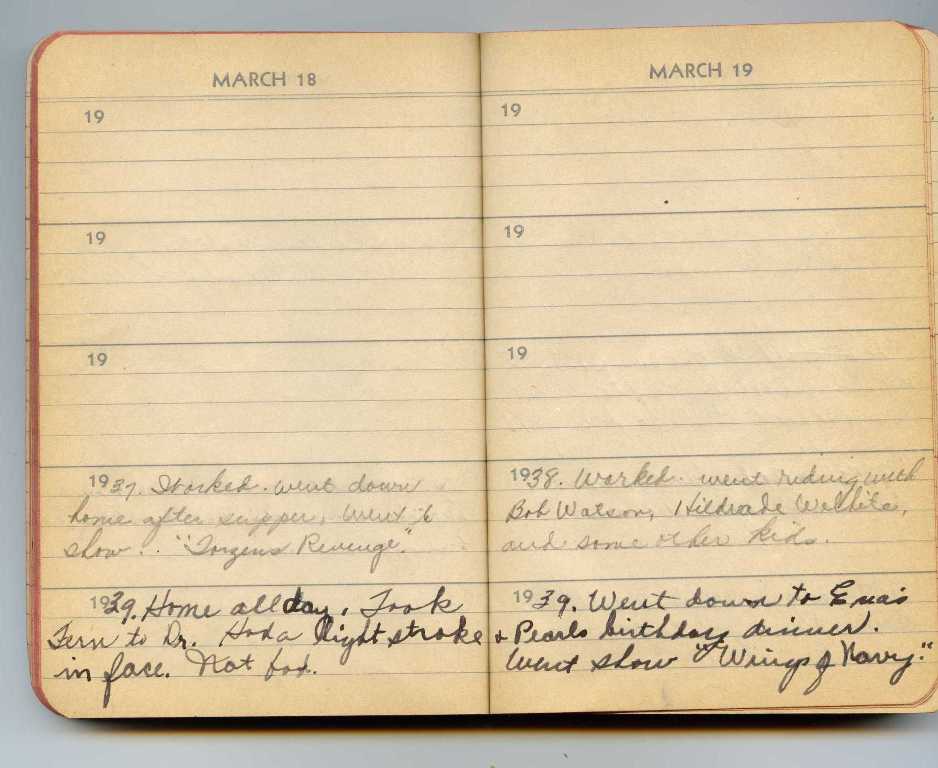 MARCH 18
19
19
19
1937. Worked. went down
home after supper, went to
show.. "Torzens Revenge".
1939. Home all day. Took
Fern to Dr. Had a light stroke
in face. Not bad.
MARCH 19
19
19
19
1938. Worked. went riding with
Bob Watson,
and some other kids.
1939. Went down to Ena's
& Pearls birthday dinner.
Went show "Wings of Navy."